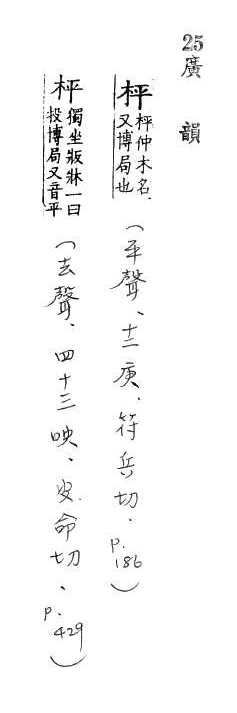 25廣韻
枰枰仲木名又博局也(平聲、十二庚、符兵切、p.186)
枰獨坐板牀一曰投博局又音平(去聲、四十三映、皮命切、p.429)